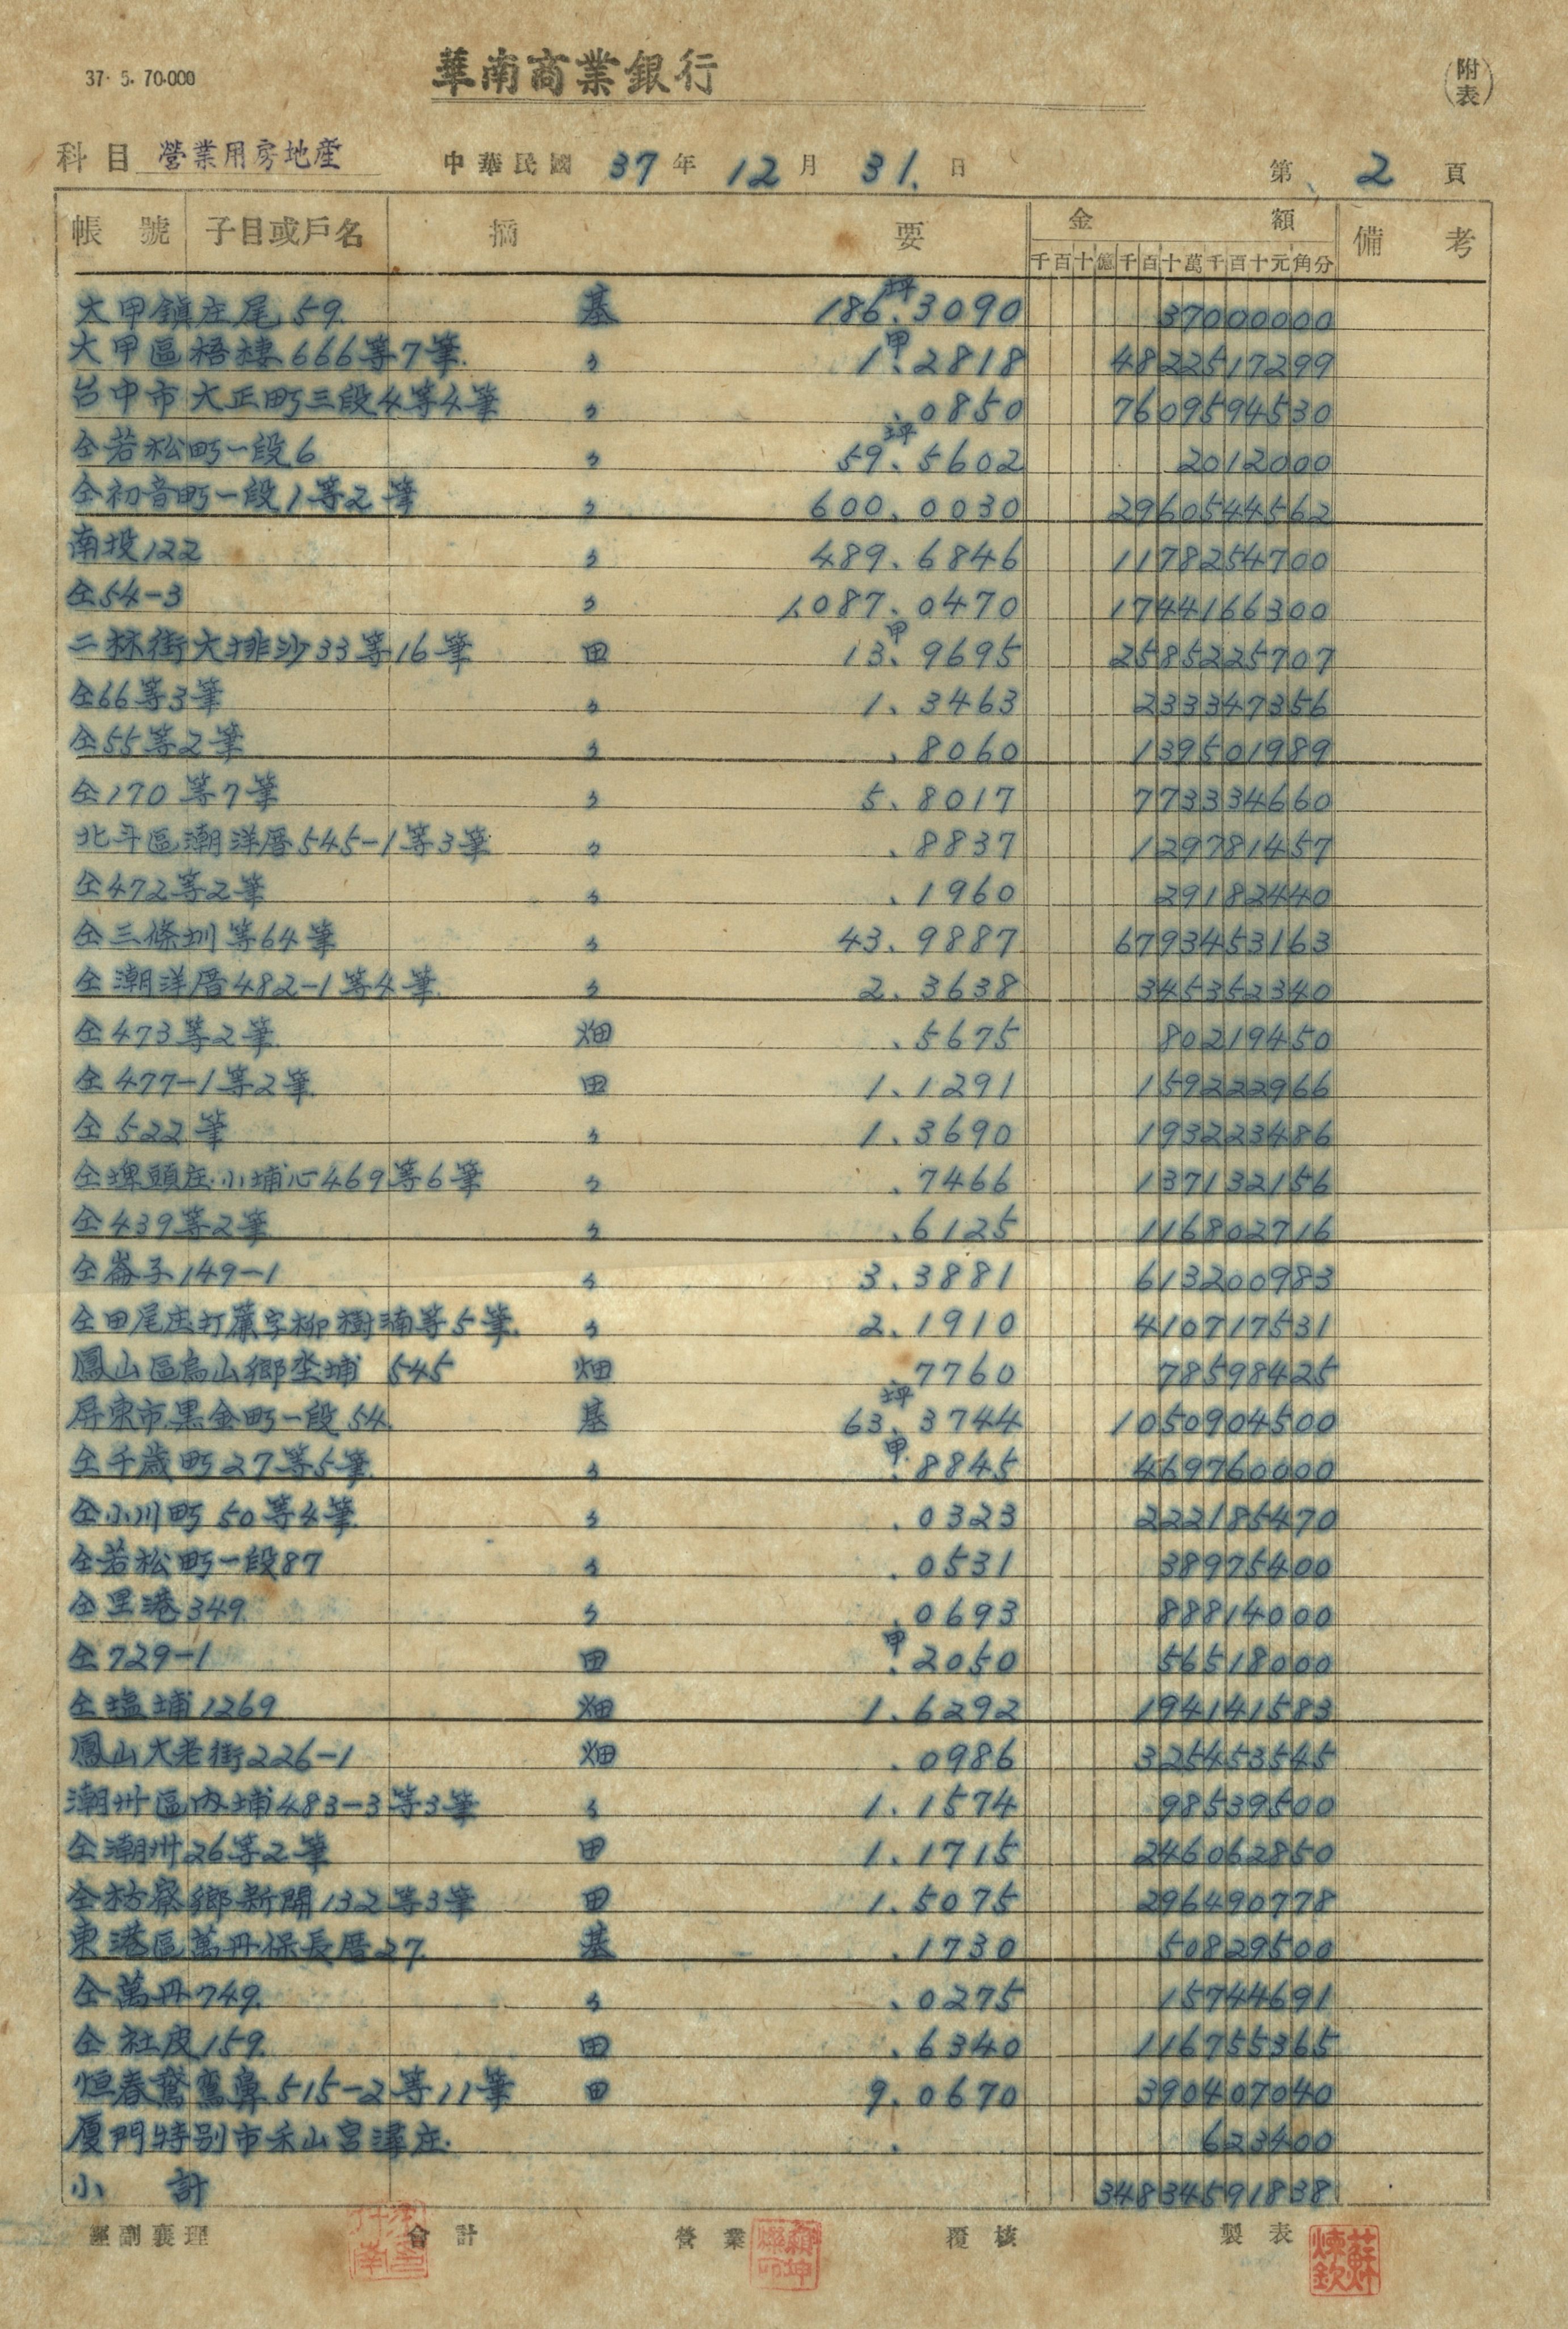 37. 5. 70.000
華南商業銀行
(附表)
科目 營業用房地産 中華民國 37 年 12 月 31. 日 第 2 頁
帳號 子目或戶名 摘要 金額 備考
千百十億千百十萬千百十元角分
大甲鎮庄尾59. 基 186坪.3090 37000000
大甲區梧棲666等7筆. 〃 1甲.2818 4822517299
台中市大正町三段4等4筆 〃 .0850 7609594530
仝若松町一段6 〃 59坪.5602 2012000
仝初音町一段1等2筆 〃 600.0030 2960544562
南投122 〃 489.6846 1178254700
仝54-3 〃 1.087.0470 1744166300
二林街大排沙33等16筆 田 13甲.9695 2585225707
仝66等3筆 〃 1.3463 233347356
仝55等2筆 〃 .8060 139501989
仝170等7筆 〃 5.8017 773334660
北斗區潮洋厝545-1等3筆 〃 .8837 129781457
仝472等2筆 〃 .1960 29182440
仝三條圳等64筆 〃 43.9887 6793453163
仝潮洋厝482-1等4筆. 〃 2.3638 345352340
仝473等2筆 畑 .5675 80219450
仝477-1等2筆. 田 1.1291 159222966
仝522筆 〃 1.3690 193223486
仝埤頭庄小埔心469等6筆 〃 .7466 137132156
仝439等2筆 〃 .6125 116802716
仝崙子149-1 〃 3.3881 613200983
仝田尾庄打簾字柳樹湳等5筆. 〃 2.1910 410717531
鳳山區烏山鄉坔埔 545 畑 7760 78598425
屏東市黒金町一段54. 基 63坪.3744 1050904500
仝千歳町27等5筆 〃 甲.8845 469760000
仝小川町50等4筆 〃 .0323 222185470
仝若松町一段87 〃 .0531 38975400
仝里港349. 〃 .0693 88814000
仝729-1 田 甲.2050 56518000
仝塩埔1269 畑 1.6292 194141583
鳳山大老街226-1 畑 .0986 325453545
潮州區内埔483-3等3筆 〃 1.1574 98539500
仝潮州26等2筆 田 1.1715 246062850
仝枋寮鄉新開132等3筆 田 1.5075 296490778
東港區萬丹保長厝27. 基 .1730 50829500
仝萬丹749. 〃 .0275 15744691
仝社皮159. 田 .6340 116755365
恒春鵞鸞鼻515-2等11筆 田 9.0670 390407040
厦門特别市禾山宮潯庄. . 623400
小計 34834591838
經副襄理 會計 營業 覆核 製表
蘇煉欽